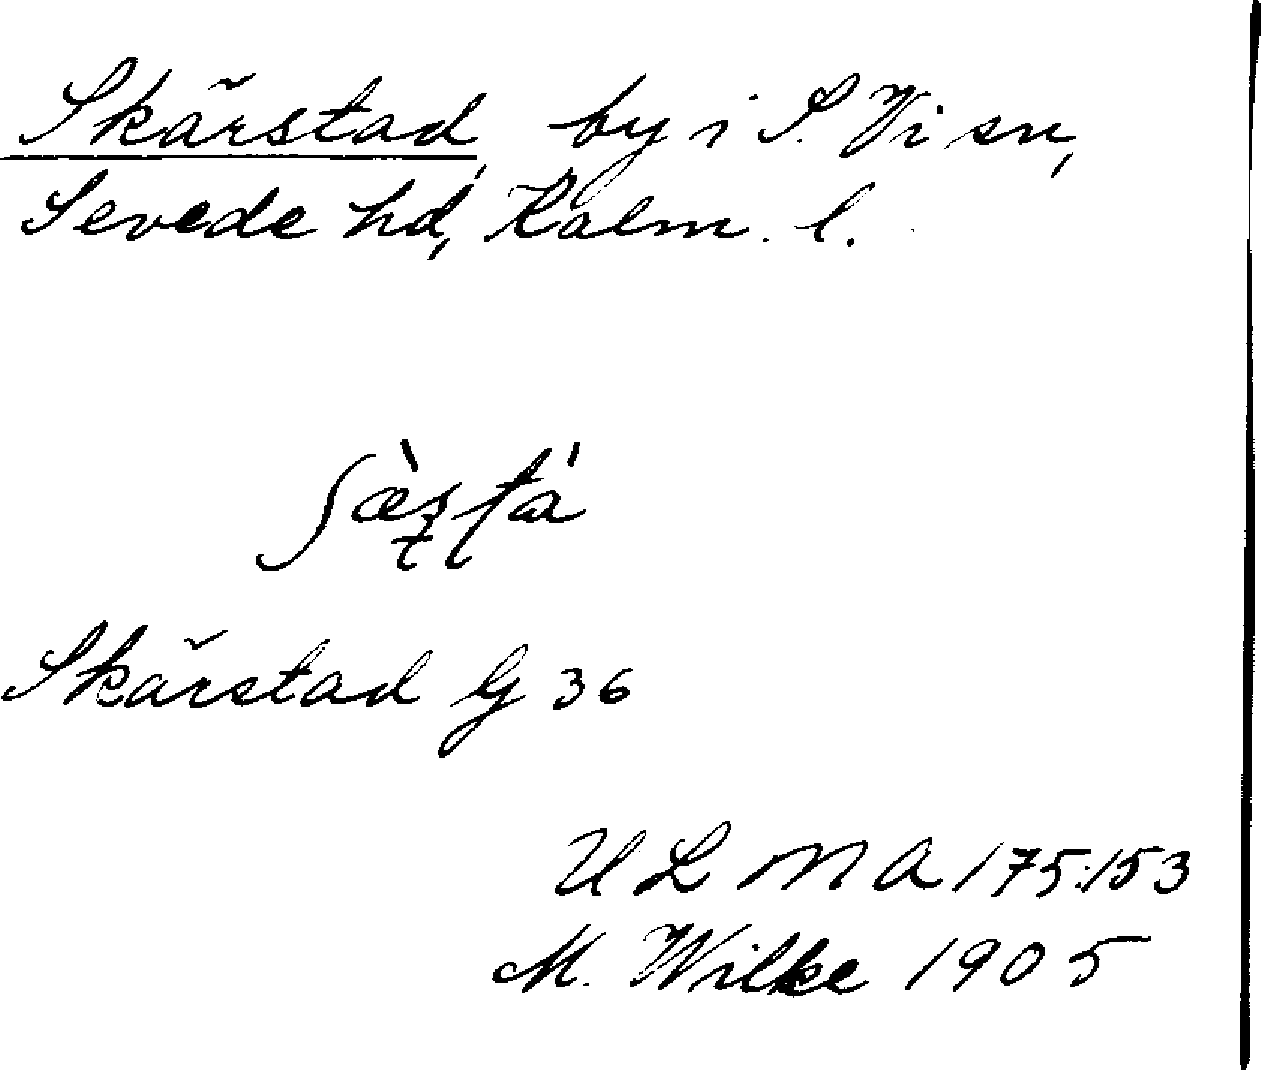 Skärstad, by i S. Vi sn,
Sevede hd, Kalm. l.
Skärstad G 36
ULMA 175:153
M. Wilke 1905